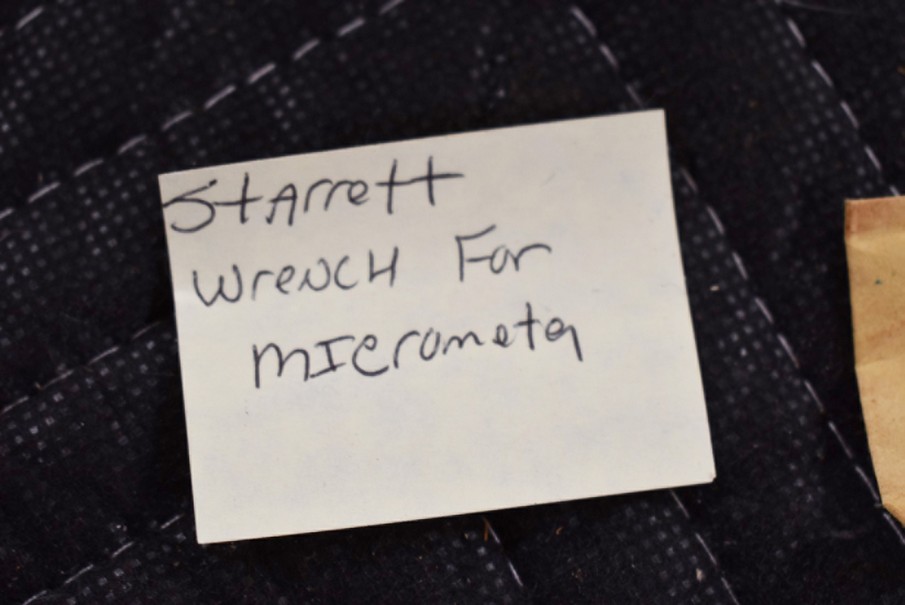 Starrett
Wrench For
Micrometer